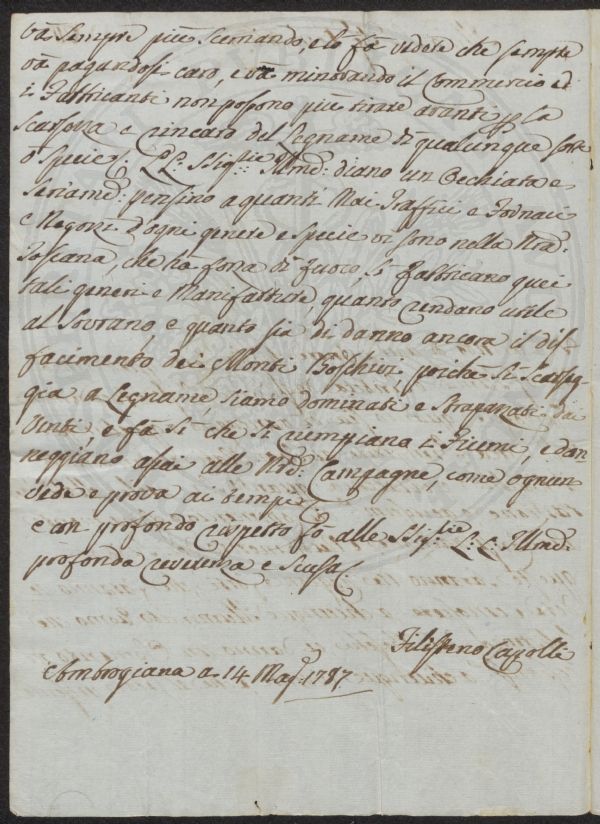 và sempre più scemando, e lo fà vedere che sempre
và pagandosi caro, e và minorando il Commercio ed
i Fabbricanti non posono più tirare avanti p la
scarsezza e rincaro del Legname di qualunque sorte
o specie. LL: SSig:rie Illmẽ: diano un Occhiata e
seriamẽ: pensino a quanti Mai Traffici e Fornaci
e Negozi d'ogni genere e specie vi sono nella Nrã:
Toscana, che hà forza di fuoco, si fabbricano quei
tali generi e Manifatture, quanto rendano utile
al Sovrano, e quanto sia di danno ancora il dis=
facimento dei Monti Boschivi, poiche si scarseg
gia a Legname, siamo dominati e strapazzati dai
Venti, e fa sì che si riempiano i Fiumi, e dan=
neggiano asai alle Nrẽ: Campagne, come ognun
vede e prova ai tempi
e con profondo rispetto fò alle SSig:rie L: L: Illmẽ:
profonda reverenza e scusa
Filisteno Capolli
Ambrogiana a 14 Mag:o 1787.